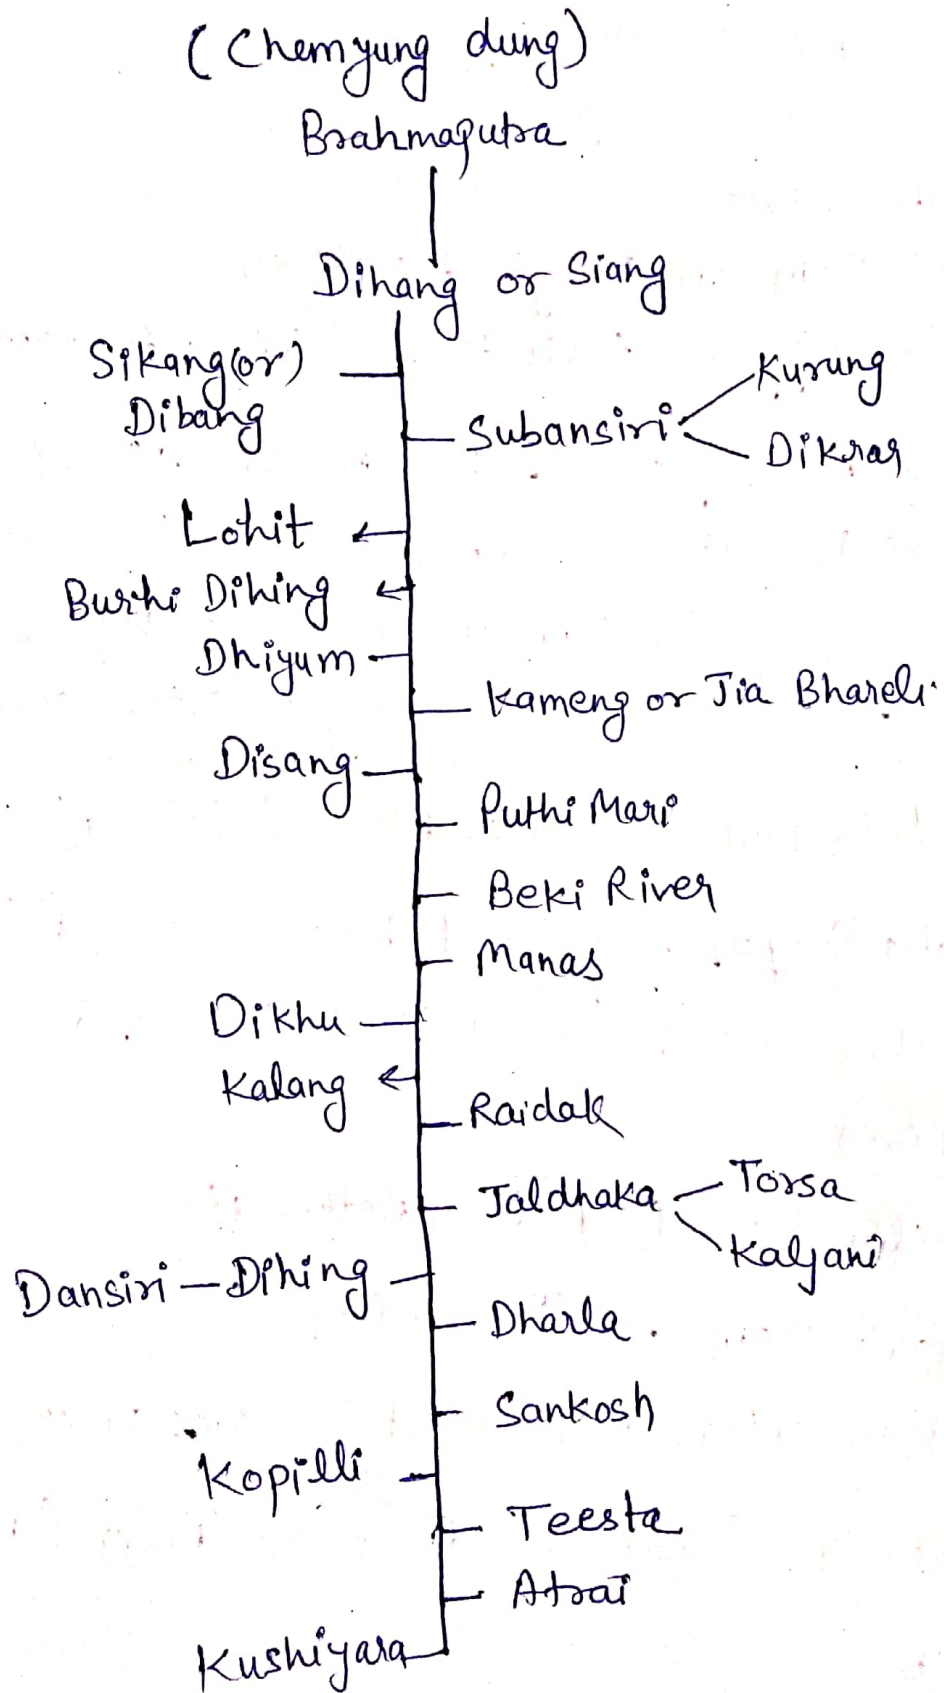 (Chemyung dung)
Brahmaputra
Dihang or Siang
Sikang (or)
Dibang
Kurung
Subansiri
Dikrar
Lohit
Burhi Dihing
Dhiyum
Kameng or Jia Bhareli
Disang
Puthi Mari
Beki River
Manas
Dikhu
Kalang
Raidak
Jaldhaka
Torsa
Kaljani
Dansiri - Dihing
Dharla.
Sankosh
Kopilli
Teesta
Atrai
Kushiyara